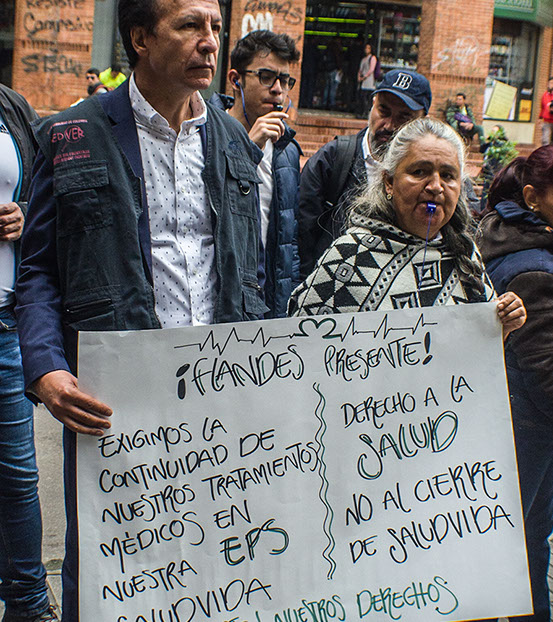 ¡FLANDES PRESENTE!
EXIGIMOS LA
CONTINUIDAD DE
NUESTROS TRATAMIENTOS
MÉDICOS EN
NUESTRA EPS
SALUDVIDA
DERECHO A LA
SALUD
NO AL CIERRE
DE SALUDVIDA
NUESTROS DERECHOS
B